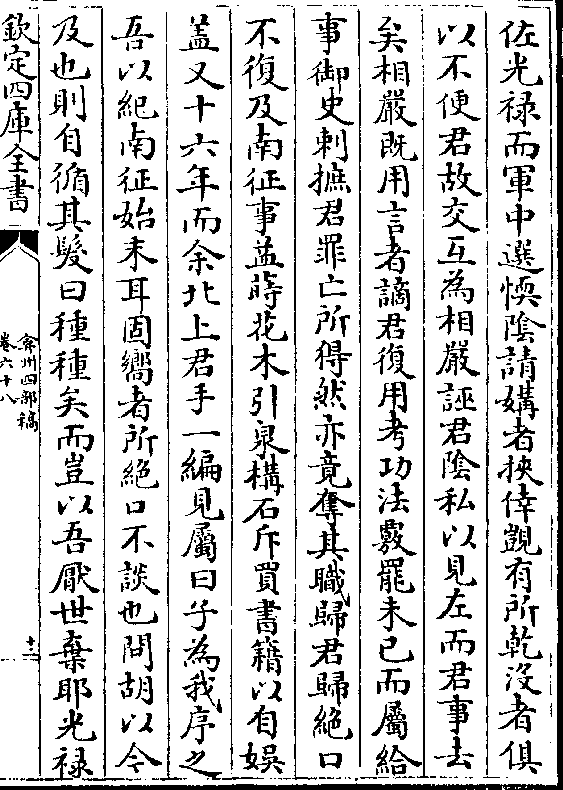 佐光禄而軍中選愞陰請媾者挾倖覬有所乾沒者俱
以不便君故交互為相嚴誣君陰私以見左而君事去
矣相嚴既用言者謫君復用考功法覈罷未已而屬給
事御史刺摭君罪亡所得然亦竟奪其職歸君歸絕口
不復及南征事益蒔花木引泉構石斥買書籍以自娱
盖又十六年而余北上君手一編見屬曰子為我序之
吾以紀南征始末耳固嚮者所絕口不談也問胡以今
及也則自循其髮曰種種矣而豈以吾厭世棄耶光禄
欽定四庫全書
弇州四部稿
卷六十八
十二